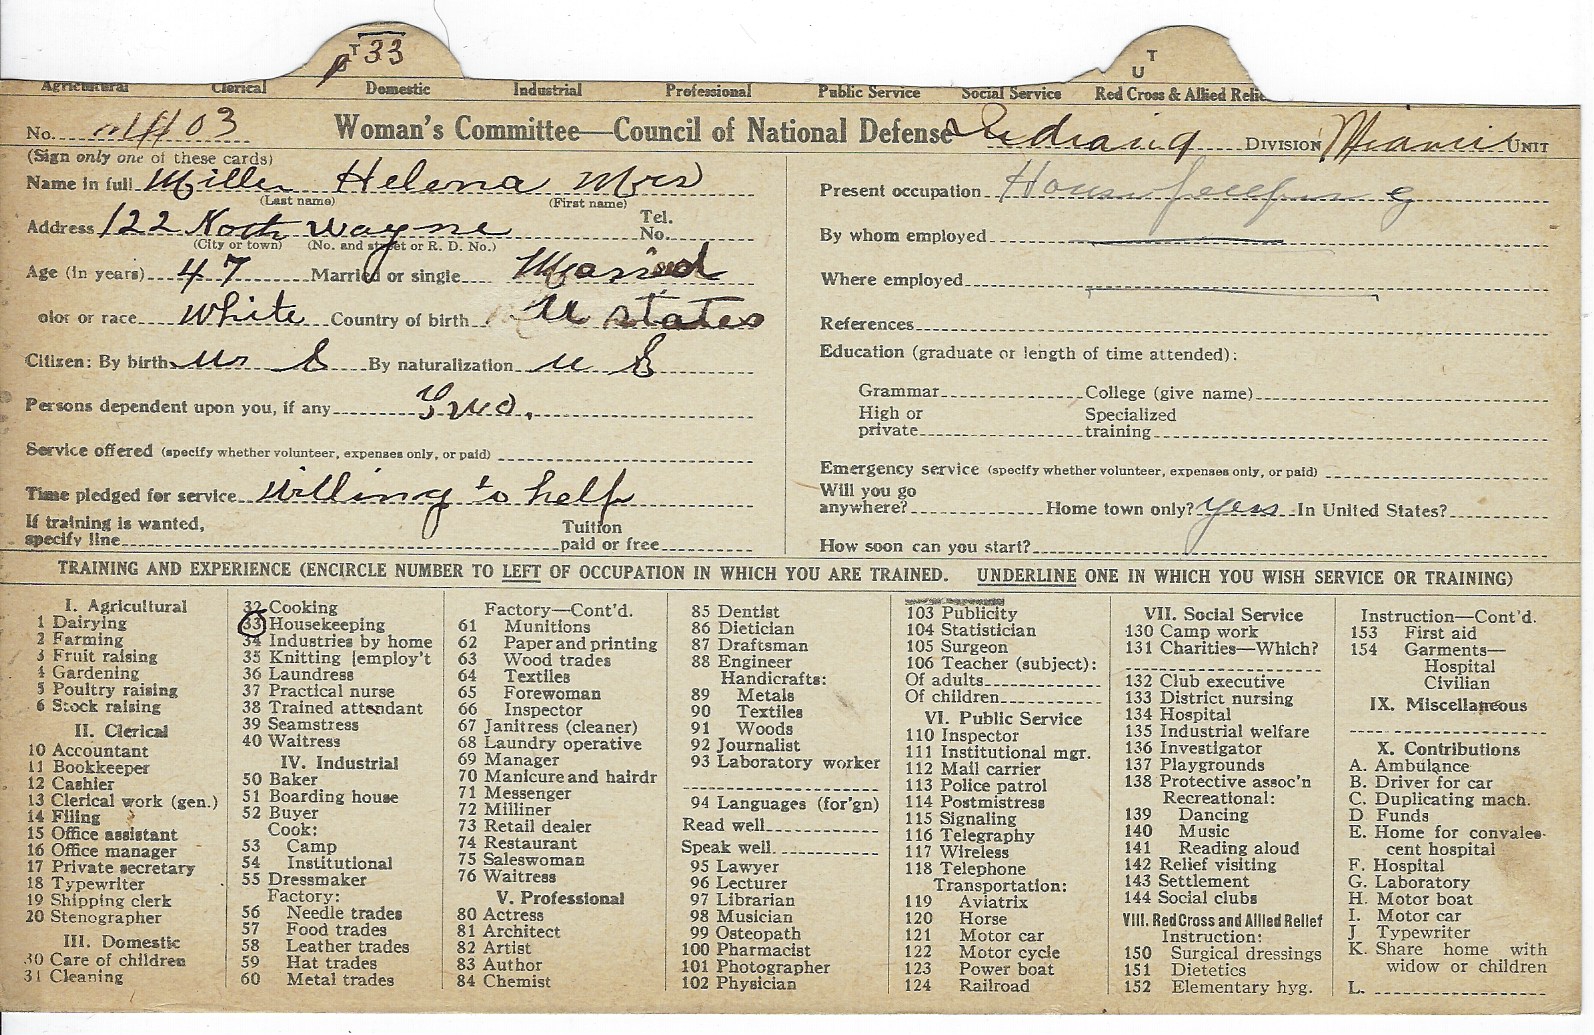 T 33
T
U
Agricultural Clerical Domestic Industrial Professional Public Service Social Service Red Cross & Allied Relie
No. 403 Woman's Committee—Council of National Defense Indiana DIVISION Miami UNIT
(Sign only one of these cards)
Name in full Miller Helena Mrs
(Last name) (First name)
Address 122 North Wayne Tel. No.
(City or town) (No. and street or R. D. No.)
Age (in years) 47 Married or single Married
olor or race White Country of birth U states
Citizen: By birth U S By naturalization U S
Persons dependent upon you, if any Two.
Service offered (specify whether volunteer, expenses only, or paid)
Time pledged for service Willing to help
If training is wanted, specify line Tuition paid or free
Present occupation Housekeeping
By whom employed
Where employed
References
Education (graduate or length of time attended):
Grammar College (give name)
High or private Specialized training
Emergency service (specify whether volunteer, expenses only, or paid)
Will you go anywhere? Home town only? Yes In United States?
How soon can you start?
TRAINING AND EXPERIENCE (ENCIRCLE NUMBER TO LEFT OF OCCUPATION IN WHICH YOU ARE TRAINED. UNDERLINE ONE IN WHICH YOU WISH SERVICE OR TRAINING)
I. Agricultural
1 Dairying
2 Farming
3 Fruit raising
4 Gardening
5 Poultry raising
6 Stock raising
II. Clerical
10 Accountant
11 Bookkeeper
12 Cashier
13 Clerical work (gen.)
14 Filing
15 Office assistant
16 Office manager
17 Private secretary
18 Typewriter
19 Shipping clerk
20 Stenographer
III. Domestic
30 Care of children
31 Cleaning
32 Cooking
33 Housekeeping
34 Industries by home
35 Knitting [employ't
36 Laundress
37 Practical nurse
38 Trained attendant
39 Seamstress
40 Waitress
IV. Industrial
50 Baker
51 Boarding house
52 Buyer
Cook:
53 Camp
54 Institutional
55 Dressmaker
Factory:
56 Needle trades
57 Food trades
58 Leather trades
59 Hat trades
60 Metal trades
Factory—Cont'd.
61 Munitions
62 Paper and printing
63 Wood trades
64 Textiles
65 Forewoman
66 Inspector
67 Janitress (cleaner)
68 Laundry operative
69 Manager
70 Manicure and hairdr
71 Messenger
72 Milliner
73 Retail dealer
74 Restaurant
75 Saleswoman
76 Waitress
V. Professional
80 Actress
81 Architect
82 Artist
83 Author
84 Chemist
85 Dentist
86 Dietician
87 Draftsman
88 Engineer
Handicrafts:
89 Metals
90 Textiles
91 Woods
92 Journalist
93 Laboratory worker
94 Languages (for'gn)
Read well
Speak well
95 Lawyer
96 Lecturer
97 Librarian
98 Musician
99 Osteopath
100 Pharmacist
101 Photographer
102 Physician
103 Publicity
104 Statistician
105 Surgeon
106 Teacher (subject):
Of adults
Of children
VI. Public Service
110 Inspector
111 Institutional mgr.
112 Mail carrier
113 Police patrol
114 Postmistress
115 Signaling
116 Telegraphy
117 Wireless
118 Telephone
Transportation:
119 Aviatrix
120 Horse
121 Motor car
122 Motor cycle
123 Power boat
124 Railroad
VII. Social Service
130 Camp work
131 Charities—Which?
132 Club executive
133 District nursing
134 Hospital
135 Industrial welfare
136 Investigator
137 Playgrounds
138 Protective assoc'n
Recreational:
139 Dancing
140 Music
141 Reading aloud
142 Relief visiting
143 Settlement
144 Social clubs
VIII. Red Cross and Allied Relief
Instruction:
150 Surgical dressings
151 Dietetics
152 Elementary hyg.
Instruction—Cont'd.
153 First aid
154 Garments—
Hospital
Civilian
IX. Miscellaneous
X. Contributions
A. Ambulance
B. Driver for car
C. Duplicating mach.
D Funds
E. Home for convales-
cent hospital
F. Hospital
G. Laboratory
H. Motor boat
I. Motor car
J Typewriter
K. Share home with
widow or children
L.